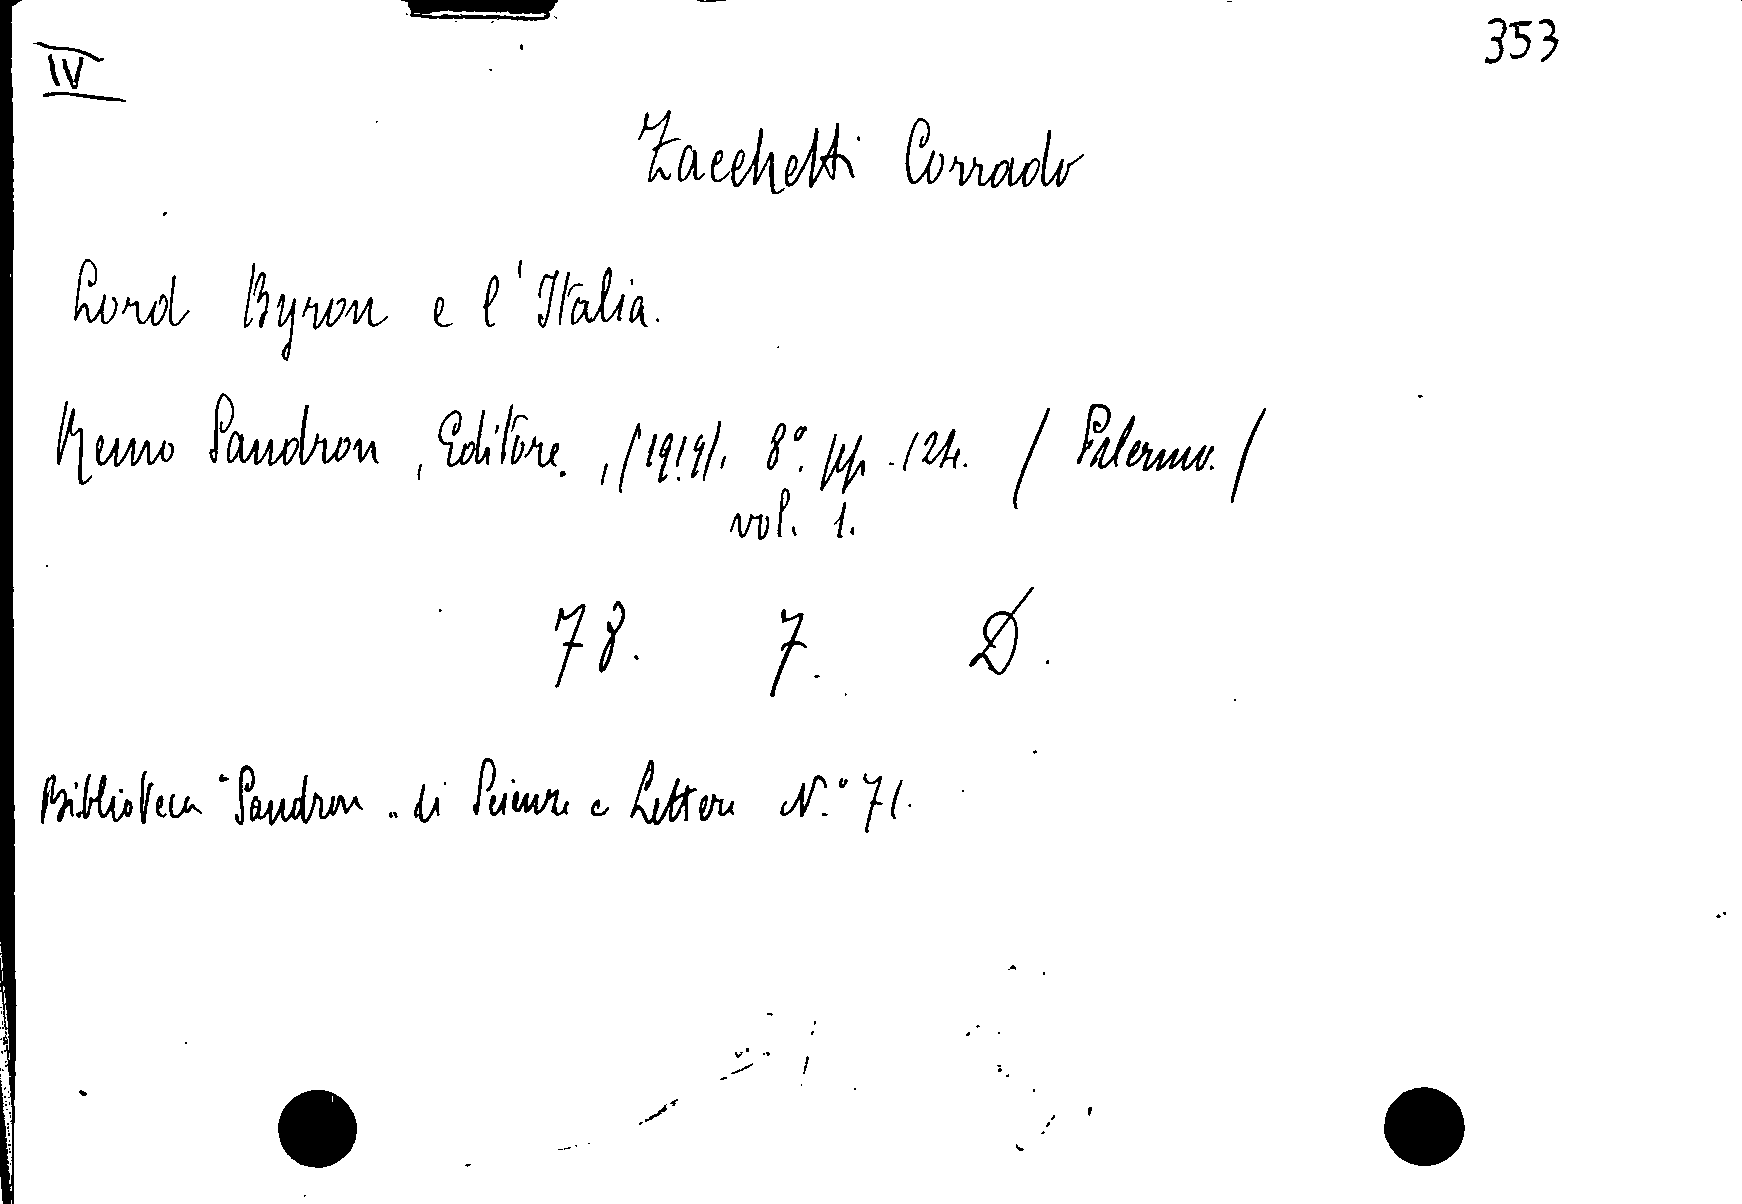 IV
353
Zacchetti Corrado
Lord Byron e l'Italia.
Remo Sandron, Editore., (1919). 8° pp. 124. / Palermo. /
vol. 1.
78. 7. D.
Biblioteca "Sandron„ di Scienze e Lettere N.° 71.